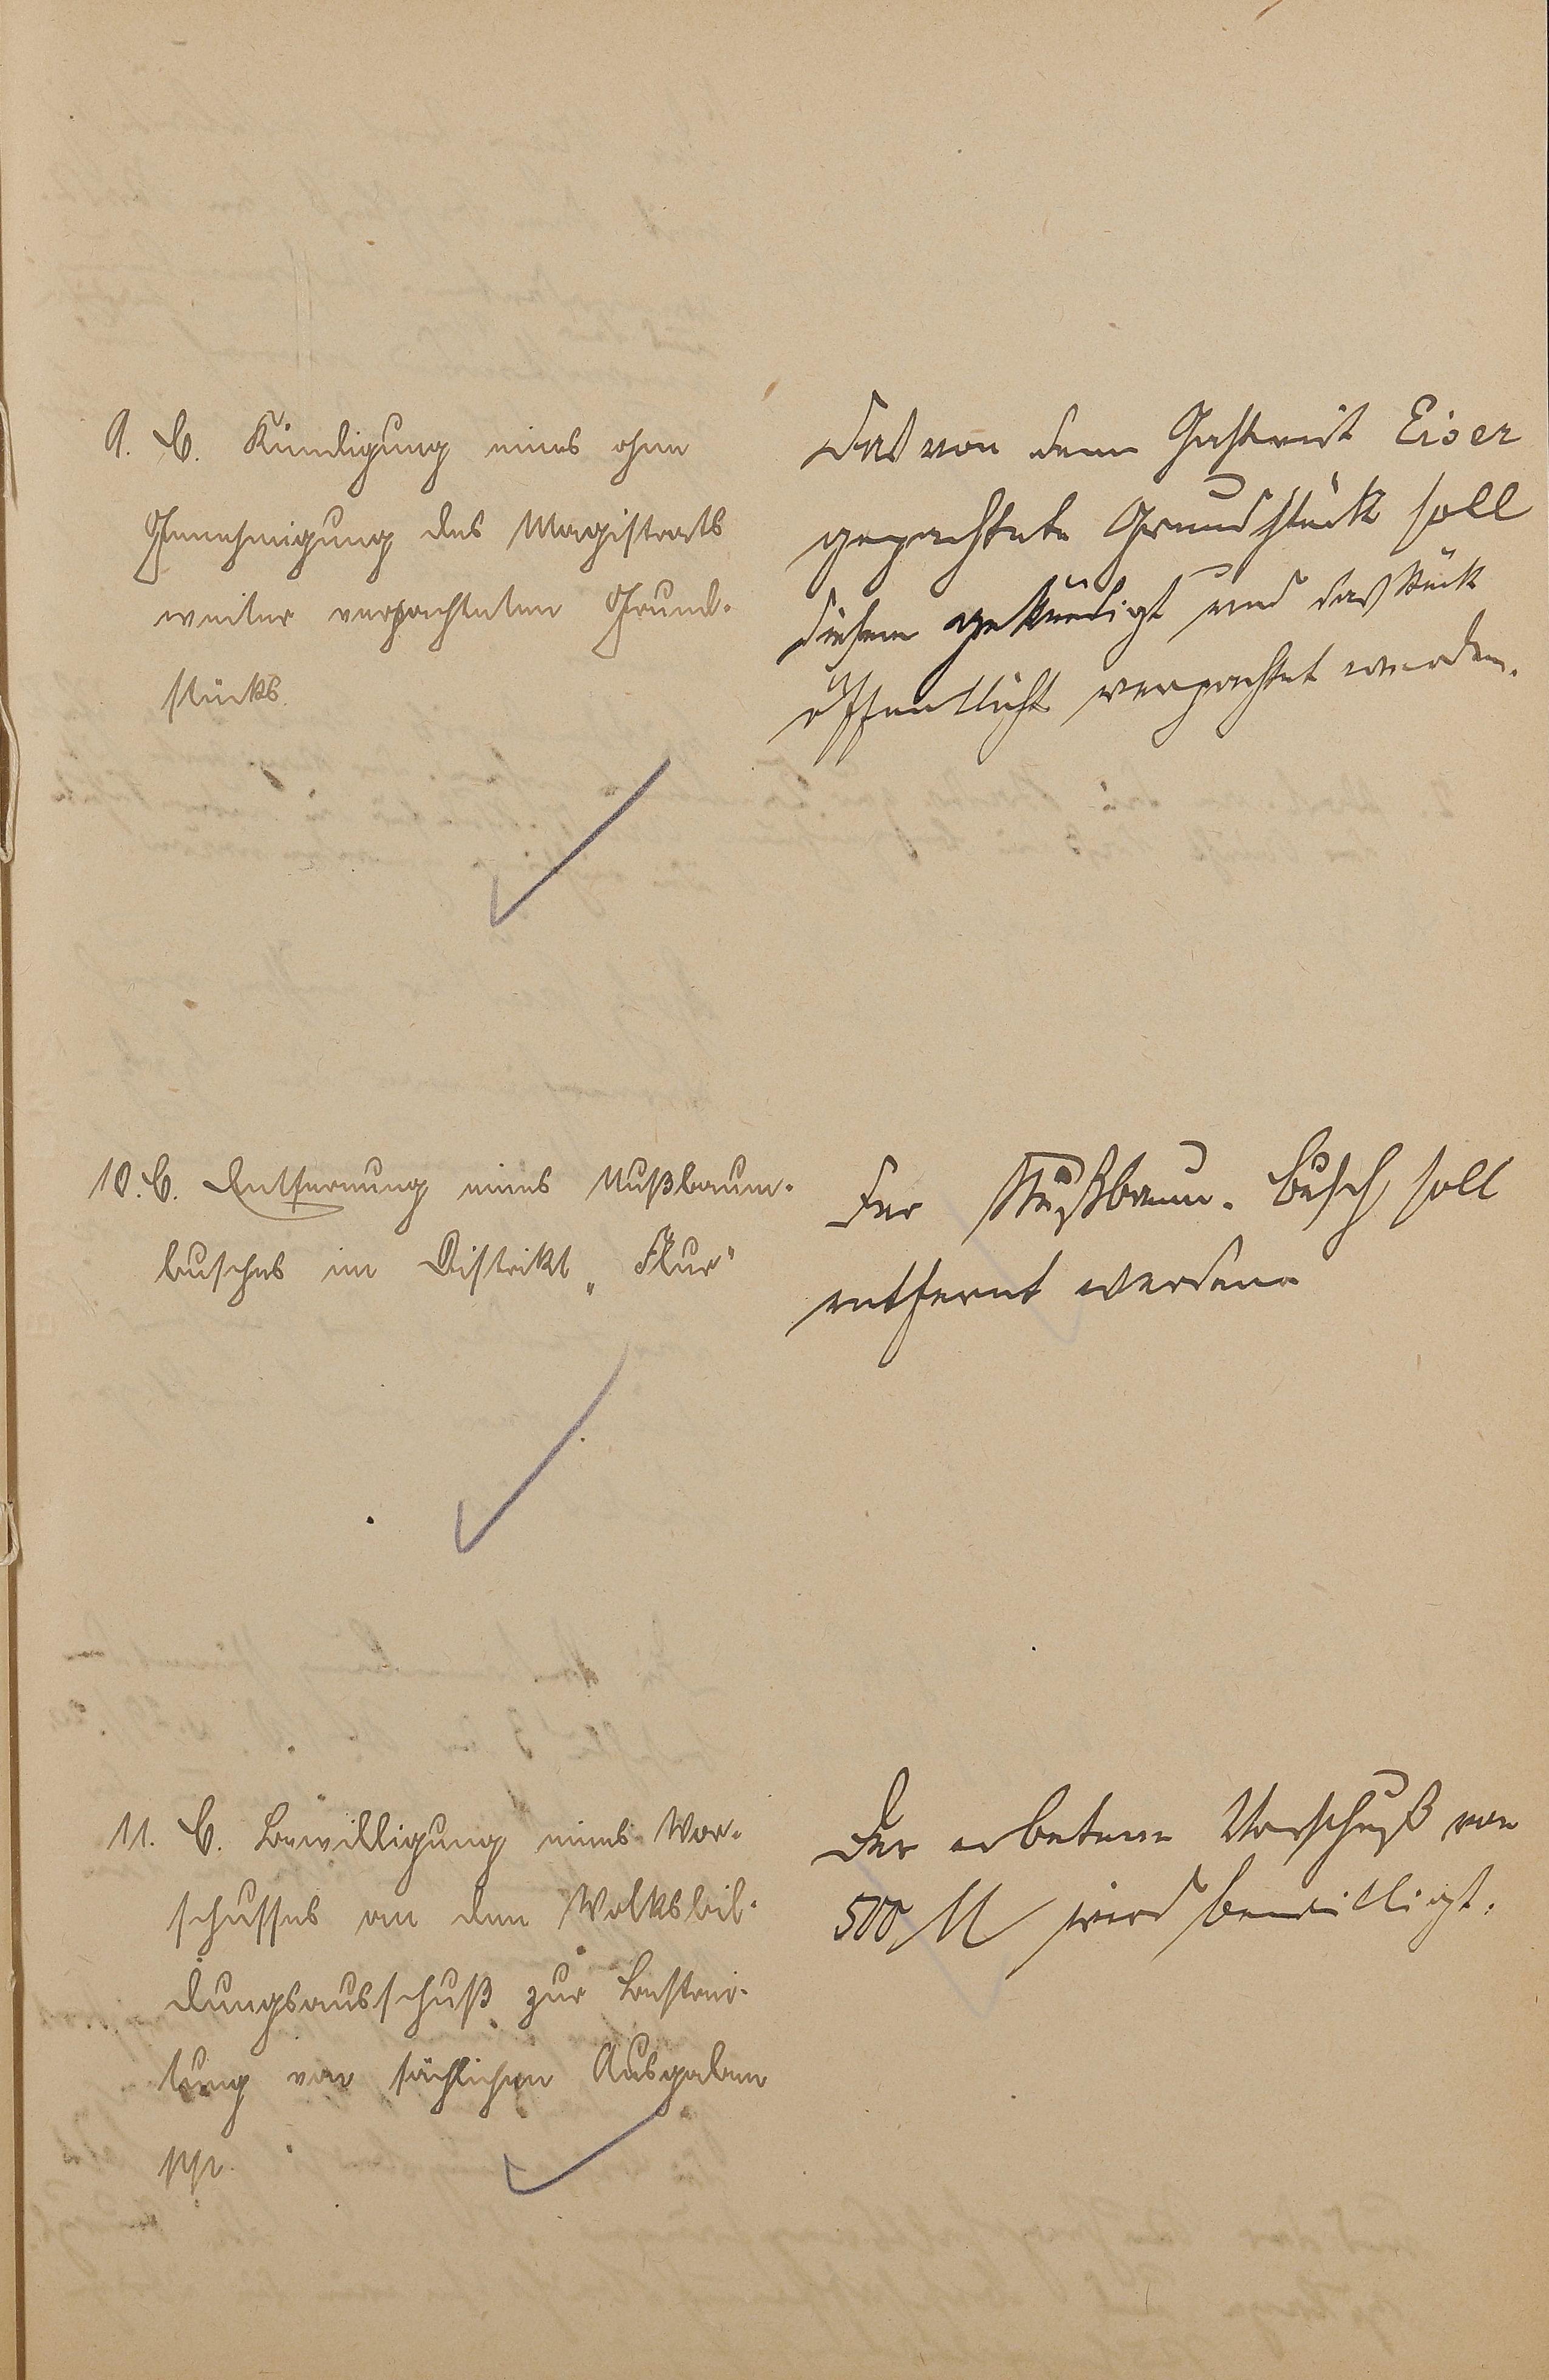 9. C. Kündigung eines ohne
Genehmigung des Magistrats
weiter verpachteten Grund-
stücks.
Das von dem Gastwirt Eiser
gepachtete Grundstück soll
diesem gekündigt und das Stück
öffentlich verpachtet werden.
10. C. Entfernung eines Nußbaum-
busches im Distrikt „Flur"
Der Nußbaum-busch soll
entfernt werden
11. C. Bewilligung eines Vor-
schusses an den Volksbil-
dungsausschuß zur Bestrei-
tung von sächlichen Ausgaben
pp.
Der erbetene Vorschuß von
500 M wird bewilligt.